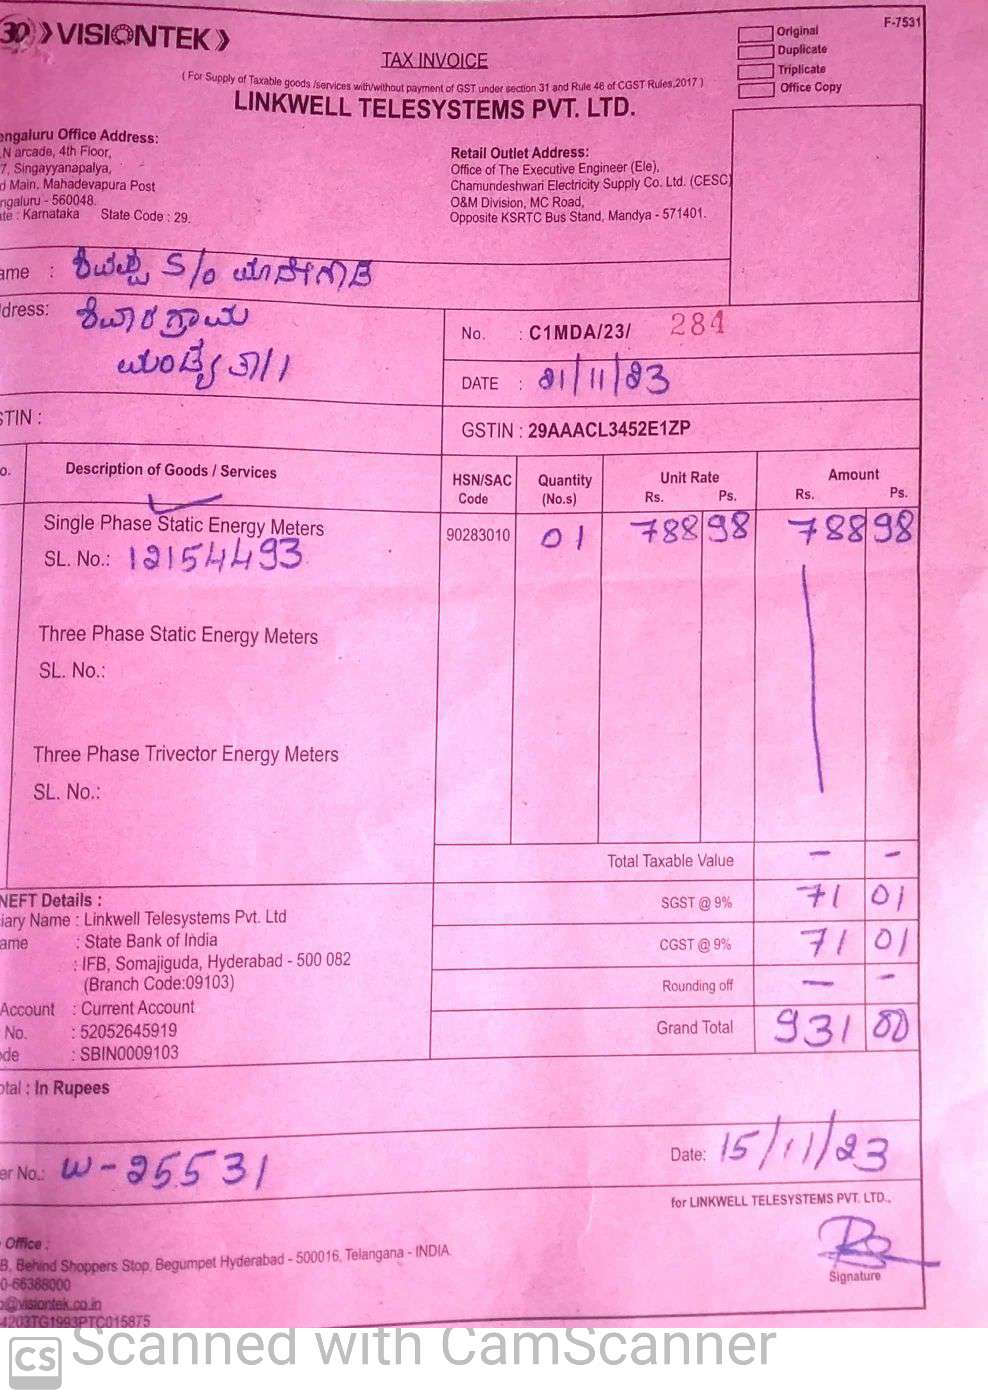 30 VISIONTEK
F-7531
Original
Duplicate
Triplicate
Office Copy
TAX INVOICE
( For Supply of Taxable goods /services with/without payment of GST under section 31 and Rule 46 of CGST Rules,2017 )
LINKWELL TELESYSTEMS PVT. LTD.
engaluru Office Address:
N arcade, 4th Floor,
7, Singayyanapalya,
d Main, Mahadevapura Post
ngaluru - 560048.
ate : Karnataka State Code : 29.
Retail Outlet Address:
Office of The Executive Engineer (Ele),
Chamundeshwari Electricity Supply Co. Ltd. (CESC)
O&M Division, MC Road,
Opposite KSRTC Bus Stand, Mandya - 571401.
ame : S/o
dress: ಶಿವಾರ ಗ್ರಾಮ
ಮಂಡ್ಯ ತಾ//
No. : C1MDA/23/ 284
DATE : 21/11/23
STIN :
GSTIN : 29AAACL3452E1ZP
o. Description of Goods / Services HSN/SAC Code Quantity (No.s) Unit Rate Rs. Ps. Amount Rs. Ps.
Single Phase Static Energy Meters 90283010 01 788 98 788 98
SL. No.: 12154493
Three Phase Static Energy Meters
SL. No.:
Three Phase Trivector Energy Meters
SL. No.:
Total Taxable Value - -
SGST @ 9% 71 01
CGST @ 9% 71 01
Rounding off - -
Grand Total 931 00
NEFT Details :
iary Name : Linkwell Telesystems Pvt. Ltd
ame : State Bank of India
: IFB, Somajiguda, Hyderabad - 500 082
(Branch Code:09103)
Account : Current Account
No. : 52052645919
ode : SBIN0009103
otal : In Rupees
er No.: W-25531
Date: 15/11/23
for LINKWELL TELESYSTEMS PVT. LTD.,
Signature
Office :
B, Behind Shoppers Stop, Begumpet Hyderabad - 500016, Telangana - INDIA
0-66388000
@visiontek.co.in
4203TG1993PTC015875
CS Scanned with CamScanner